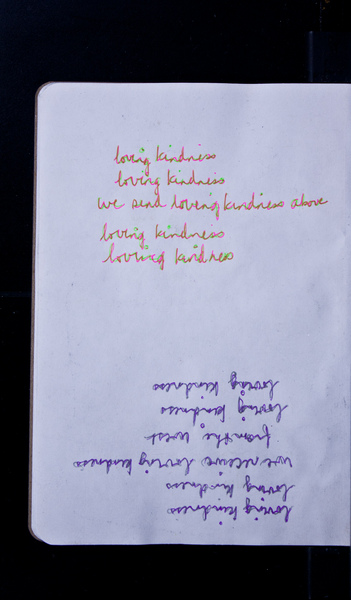 loving kindness
loving kindness
we send loving kindness above
loving kindness
loving kindness
loving kindness
loving kindness
we receive loving kindness
from the west
loving kindness
loving kindness